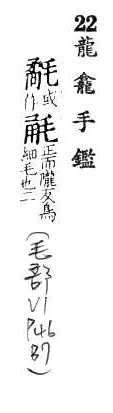 22 龍龕手鑑
氄或作正而隴反鳥細毛也二
(毛部 VI P46 B7)